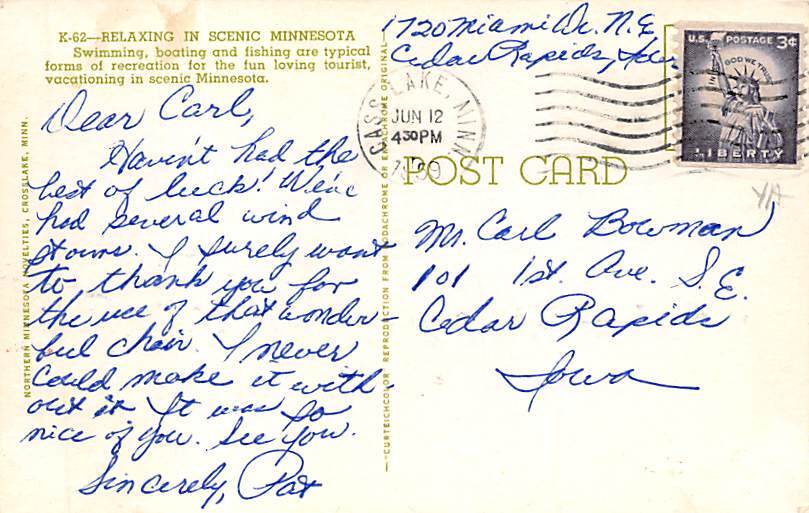 K-62—RELAXING IN SCENIC MINNESOTA
Swimming, boating and fishing are typical
forms of recreation for the fun loving tourist,
vacationing in scenic Minnesota.
Dear Carl,
Havin't had the
best of luck! We've
had several wind
storms. I surely want
to thank you for
the use of that wonder-
ful chair. I never
could make it with-
out it It was so
nice of you. See you.
Sincerely, Pat
NORTHERN MINNESOTA NOVELTIES, CROSSLAKE, MINN.
—CURTEICHCOLOR REPRODUCTION FROM KODACHROME OR EKTACHROME ORIGINAL—
1720 Miami Dr. N.E.
Cedar Rapids, Iowa
CASS LAKE, MINN.
JUN 12
4 30 PM
U.S. POSTAGE 3¢
IN GOD WE TRUST
LIBERTY
POST CARD
Mr. Carl Bowman
101 1st. Ave. S.E.
Cedar Rapids
Iowa